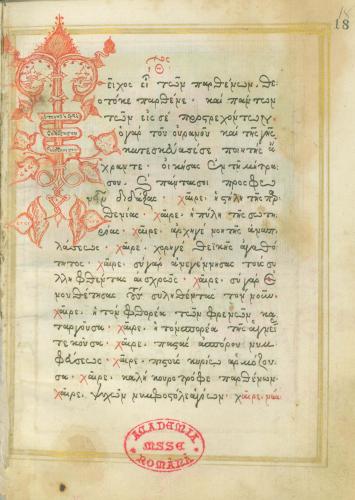 18
εῖχος εἶ τῶν παρθένων, Θε
οτόκε παρθένε· καὶ πάντων
τῶν εἰς σὲ προστρεχόντων·
ὁ γὰρ τοῦ οὐρανοῦ καὶ τῆς γῆς,
κατεσκεύασέ σε ποιητὴς ἄ
χραντε· οἰκήσας ἐν τῇ μήτρᾳ
σου· καὶ πάντας σοι προσφω
νεῖν διδάξας· χαῖρε, ἡ στήλη τῆς παρ
θενίας· χαῖρε, ἡ πύλη τῆς σωτη
ρίας· χαῖρε, ἀρχηγὲ νοητῆς ἀναπ
λάσεως· χαῖρε, χορηγὲ θεϊκῆς ἀγαθό
τητος· χαῖρε, σὺ γὰρ ἀνεγέννησας τοὺς συ
λληφθέντας αἰσχρῶς· χαῖρε, σὺ γὰρ ἐ
νουθέτησας τοὺς συληθέντας τὸν νοῦν·
χαῖρε, ἡ τὸν φθορέα τῶν φρενῶν κα
ταργοῦσα· χαῖρε, ἡ τὸν σπορέα τῆς ἁγνείας
τεκοῦσα· χαῖρε, παστὰς ἀσπόρου νυμ
φεύσεως· χαῖρε, πιστοὺς κυρίῳ ἁρμόζου
σα· χαῖρε, καλὴ κουροτρόφε παρθένων·
χαῖρε, ψυχῶν νυμφοστόλε ἁγίων· χαῖρε,
ACADEMIA
MSSE
ROMÂNĂ